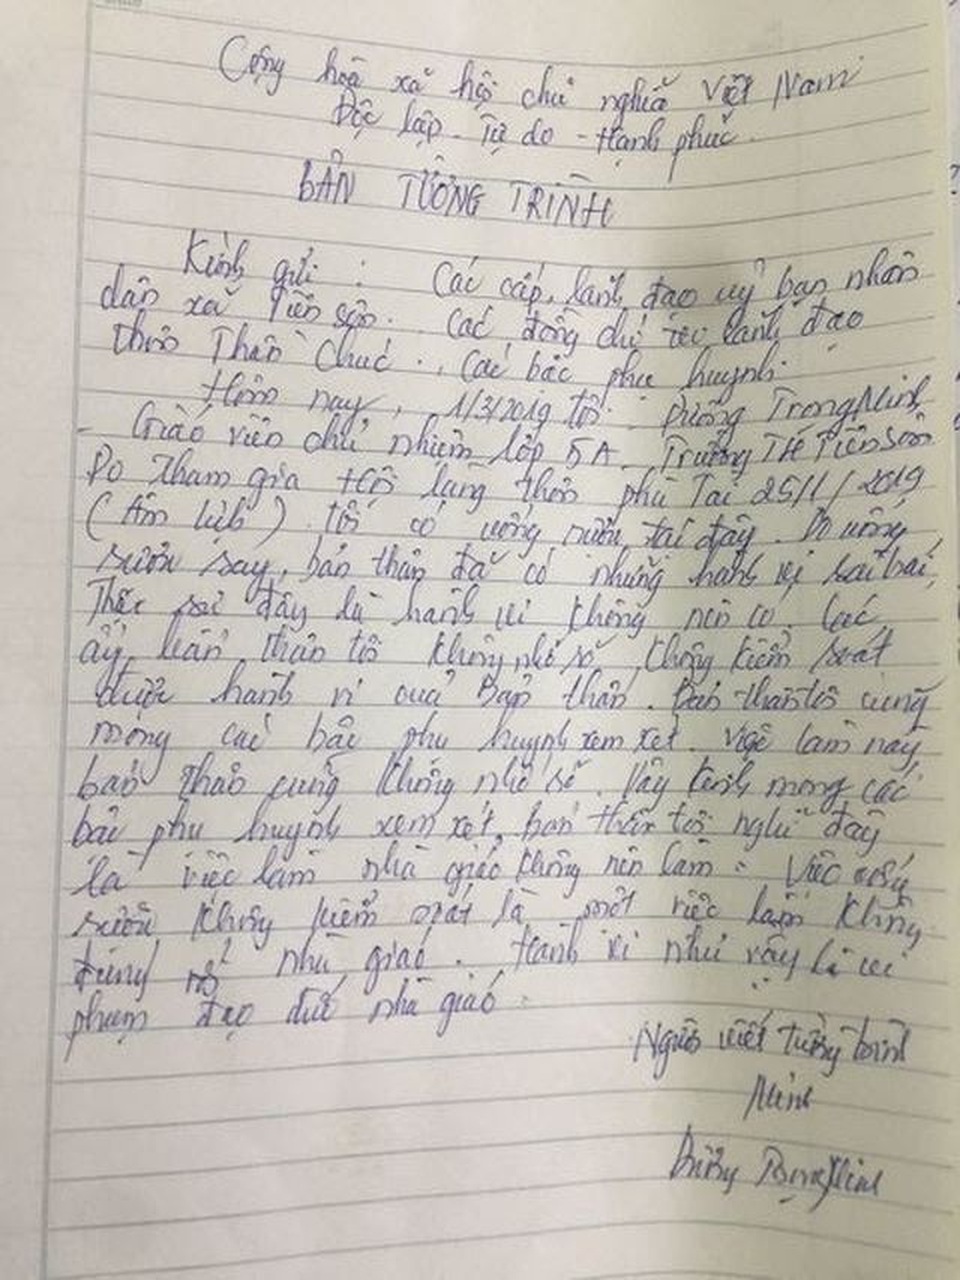 Cộng hoà xã hội chủ nghĩa Việt Nam
Độc lập - Tự do - Hạnh phúc.
BẢN TƯỜNG TRÌNH
Kính gửi : Các cấp, lãnh đạo uỷ ban nhân
dân xã Tiên sơn. Các đồng chí lãnh đạo
thôn Thần Chúc. , Các bác phụ huynh.
Hôm nay, 1/3/2019 tôi. Dương Trọng Minh
- Giáo viên chủ nhiệm lớp 5A - Trường TH Tiên Sơn
Do Tham gia Hội làng thôn phù Tài 25/1/2019
(Âm lịch) tôi có uống rượu tại đây. Do uống
rượu say, bản thân đã có những hành vi sai trái,
Thực sự đây là hành vi không nên có. Lúc
ấy bản thân tôi không nhớ rõ, không kiểm soát
được hành vi của Bản thân. Bản thân tôi cũng
mong các bác phụ huynh xem xét. Việc làm này,
bản thân cũng không nhớ rõ. Vậy kính mong các
bác phụ huynh xem xét, bản thân tôi nghĩ đây
là việc làm nhà giáo không nên làm. Việc uống
rượu không kiểm soát là một việc làm không
đúng nhà giáo. Hành vi như vậy là vi
phạm đạo đức nhà giáo.
Người viết tường trình
Minh
Dương Trọng Minh